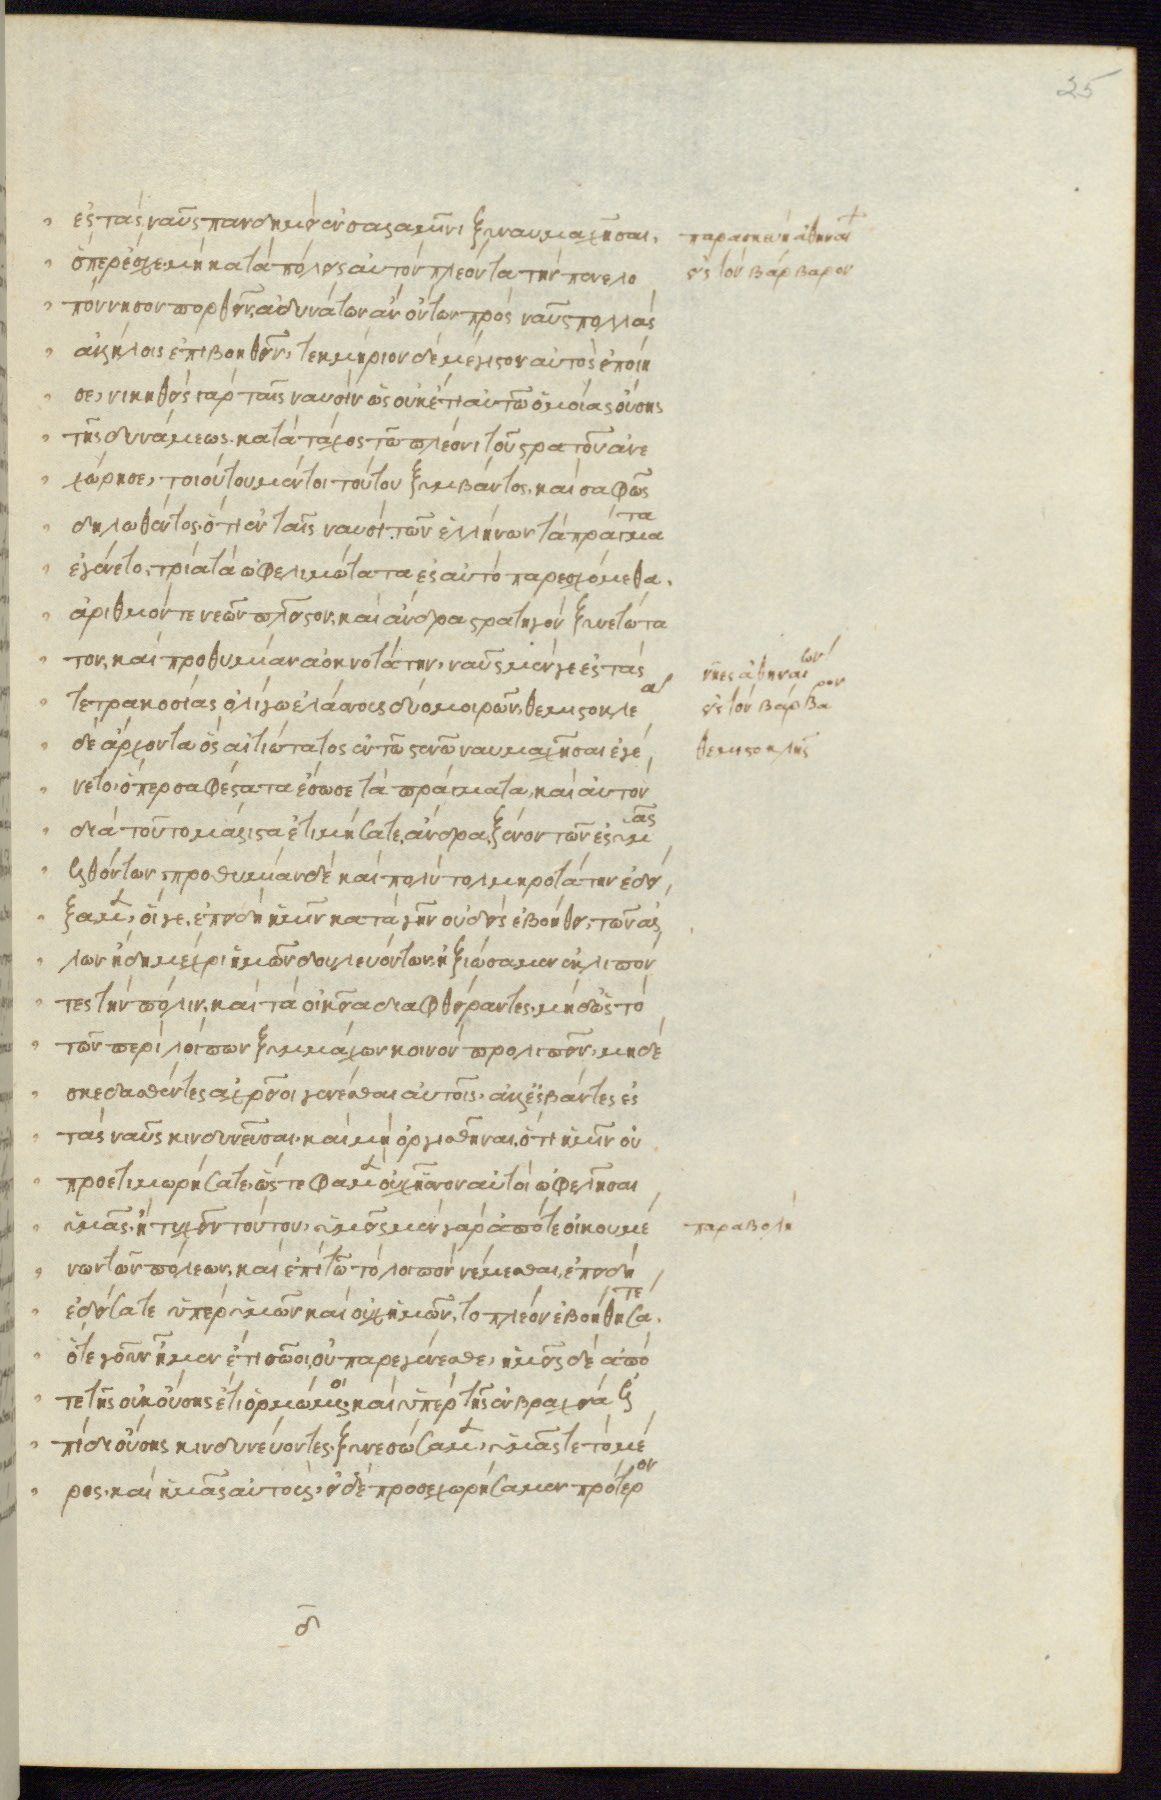 ἐς τὰς ναῦς πανδημεὶ ἐν σαλαμῖνι ξυναυμαχῆσαι,
ὅπερ ἔσχε μὴ κατὰ πόλεις αὐτὸν πλέοντα τὴν πελο
πόννησον πορθεῖν, ἀδυνάτων ἂν ὄντων πρὸς ναῦς πολλὰς
ἀλλήλοις ἐπιβοηθεῖν· τεκμήριον δὲ μέγιστον αὐτὸς ἐποίη
σε, νικηθεὶς γὰρ ταῖς ναυσὶν ὡς οὐκέτι αὐτῶ ὁμοίας οὔσης
τῆς δυνάμεως. κατὰ τάχος τῶ πλέονι τοῦ στρατοῦ ἀνε
χώρησε, τοιούτου μέντοι τούτου ξυμβάντος. καὶ σαφῶς
δηλωθέντος· ὅτι ἐν ταῖς ναυσὶ τῶν ἑλλήνων τὰ πράγματα
ἐγένετο, τρία τὰ ὠφελιμώτατα ἐς αὐτὸ παρεσχόμεθα.
ἀριθμόν τε νεῶν πλεῖστον, καὶ ἄνδρα στρατηγὸν ξυνετώτα
τον, καὶ προθυμίαν ἀοκνοτάτην, ναῦς μέν γε ἐς τὰς
τετρακοσίας ὀλίγω ἐλάσσους δύο μοιρῶν, θεμιστοκλέα
δὲ ἄρχοντα ὃς αἰτιώτατος ἐν τῶ στενῶ ναυμαχῆσαι ἐγέ
νετο, ὅπερ σαφέστατα ἔσωσε τὰ πράγματα, καὶ αὐτὸν
διὰ τοῦτο μάλιστα ἐτιμήσατε, ἄνδρα ξένον τῶν ἐς ὑμᾶς
ἐλθόντων, προθυμίαν δὲ καὶ πολὺ τολμηροτάτην ἐδεί
ξαμεν, οἵ γε, ἐπειδὴ ἡμῖν κατὰ γῆν οὐδεὶς ἐβοήθει, τῶν ἄλ
λων ἤδη μέχρι ἡμῶν δουλευόντων, ἠξιώσαμεν ἐκλιπόν
τες τὴν πόλιν, καὶ τὰ οἰκεῖα διαφθείραντες. μηδ' ὣς τὸ
τῶν περιλοίπων ξυμμάχων κοινὸν προλιπεῖν, μηδὲ
σκεδασθέντες ἀχρεῖοι γενέσθαι αὐτοῖς, ἀλλ' ἐσβάντες ἐς
τὰς ναῦς κινδυνεῦσαι. καὶ μὴ ὀργισθῆναι, ὅτι ἡμῖν οὐ
προετιμωρήσατε, ὥστε φαμὲν οὐχ ἧσσον αὐτοὶ ὠφελῆσαι
ὑμᾶς, ἢ τυχεῖν τούτου, ὑμεῖς μὲν γὰρ ἀπό τε οἰκουμέ
νων τῶν πόλεων, καὶ ἐπὶ τῶ τὸ λοιπὸν νέμεσθαι, ἐπειδὴ
ἐδείσατε ὑπὲρ ὑμῶν καὶ οὐχ ἡμῶν, τὸ πλέον ἐβοηθήσατε.
ὅτε γοῦν ἦμεν ἔτι σῶοι, οὐ παρεγένεσθε, ἡμεῖς δὲ ἀπό
τε τῆς οὐκ οὔσης ἔτι ὁρμώμενοι, καὶ ὑπὲρ τῆς ἐν βραχεῖα ἐλ
πίδι οὔσης κινδυνεύοντες, ξυνεσώσαμεν, ὑμᾶς τε τὸ μέ
ρος. καὶ ἡμᾶς αὐτούς, εἰ δὲ προσεχωρήσαμεν πρότερον
δ
25
παρασκευὴ ἀθηναί
εἰς τὸν βάρβαρον
νῆες ἀθηναίων
εἰς τὸν βάρβαρον
θεμιστοκλῆς
παραβολή